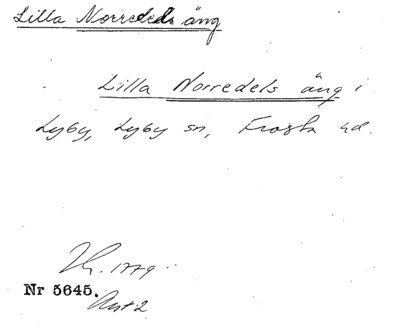 Lilla Norredels äng
Lilla Norredels äng i
Lyby, Lyby sn, Frosta hd.
1779.
Nr 5645.
Akt 2